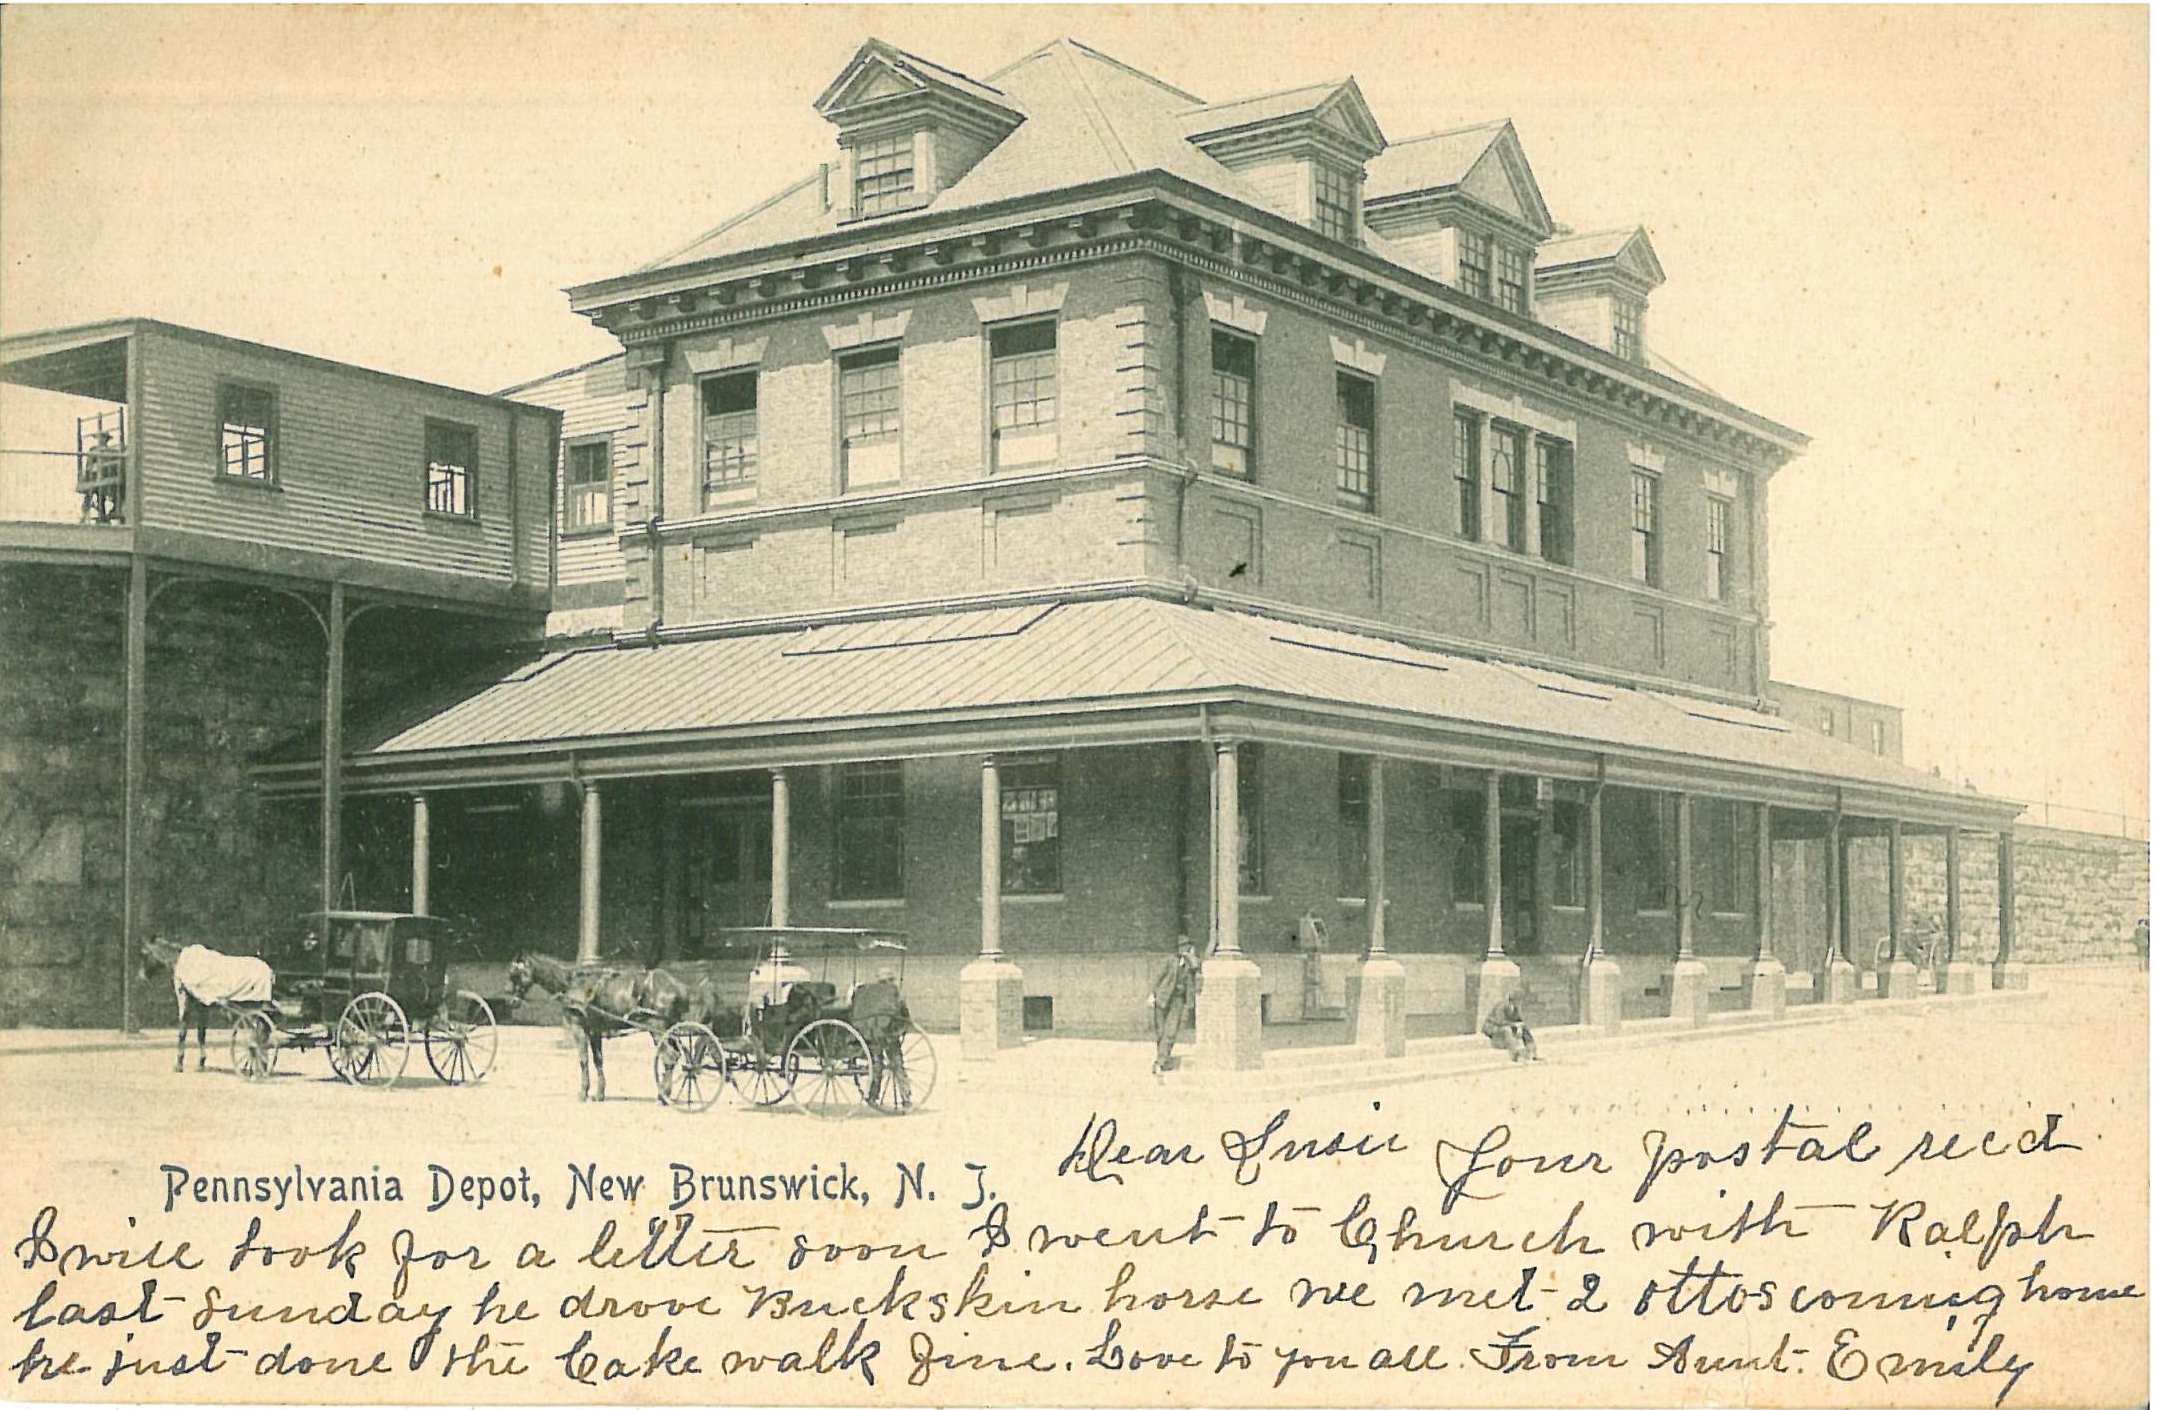 Dear Susie Your postal recd
Pennsylvania Depot, New Brunswick, N. J.
I will look for a letter soon I went to Church with Ralph
last Sunday he drove Buckskin horse we met 2 ottos coming home
he just done the Cake walk fine. Love to you all. From Aunt. Emily